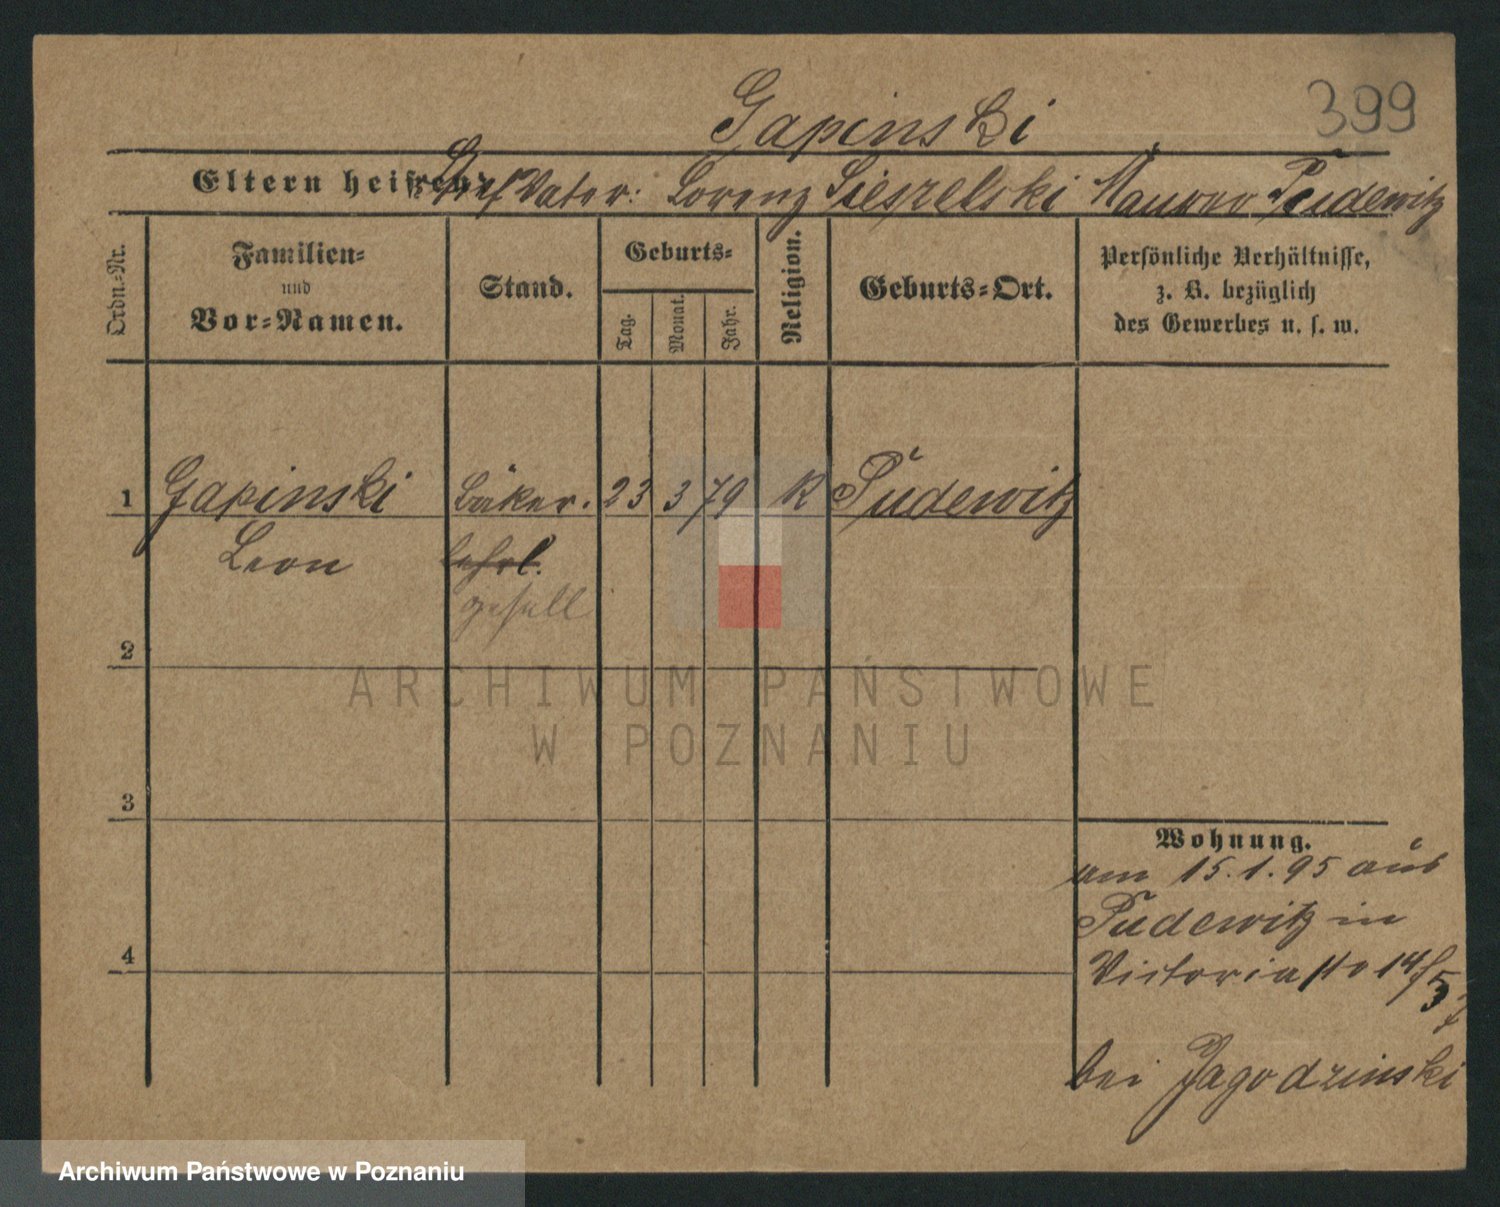 Gapinski
399
Eltern heißen: Stief Vater: Lorenz Sieszelski Maurer Pudewitz
Ordn.-Nr.
Familien-
und
Vor-Namen.
Stand.
Geburts-
Tag.
Monat.
Jahr.
Religion.
Geburts-Ort.
Persönliche Verhältnisse,
z. B. bezüglich
des Gewerbes u. s. w.
1 Gapinski Bäker. 23 3 79 K Pudewitz
Leon lehrl.
gesell
2
3
4
Wohnung.
am 15.1.95 aus
Pudewitz in
Victoriastr 14/5
bei Jagodzinski
ARCHIWUM PAŃSTWOWE
W POZNANIU
Archiwum Państwowe w Poznaniu